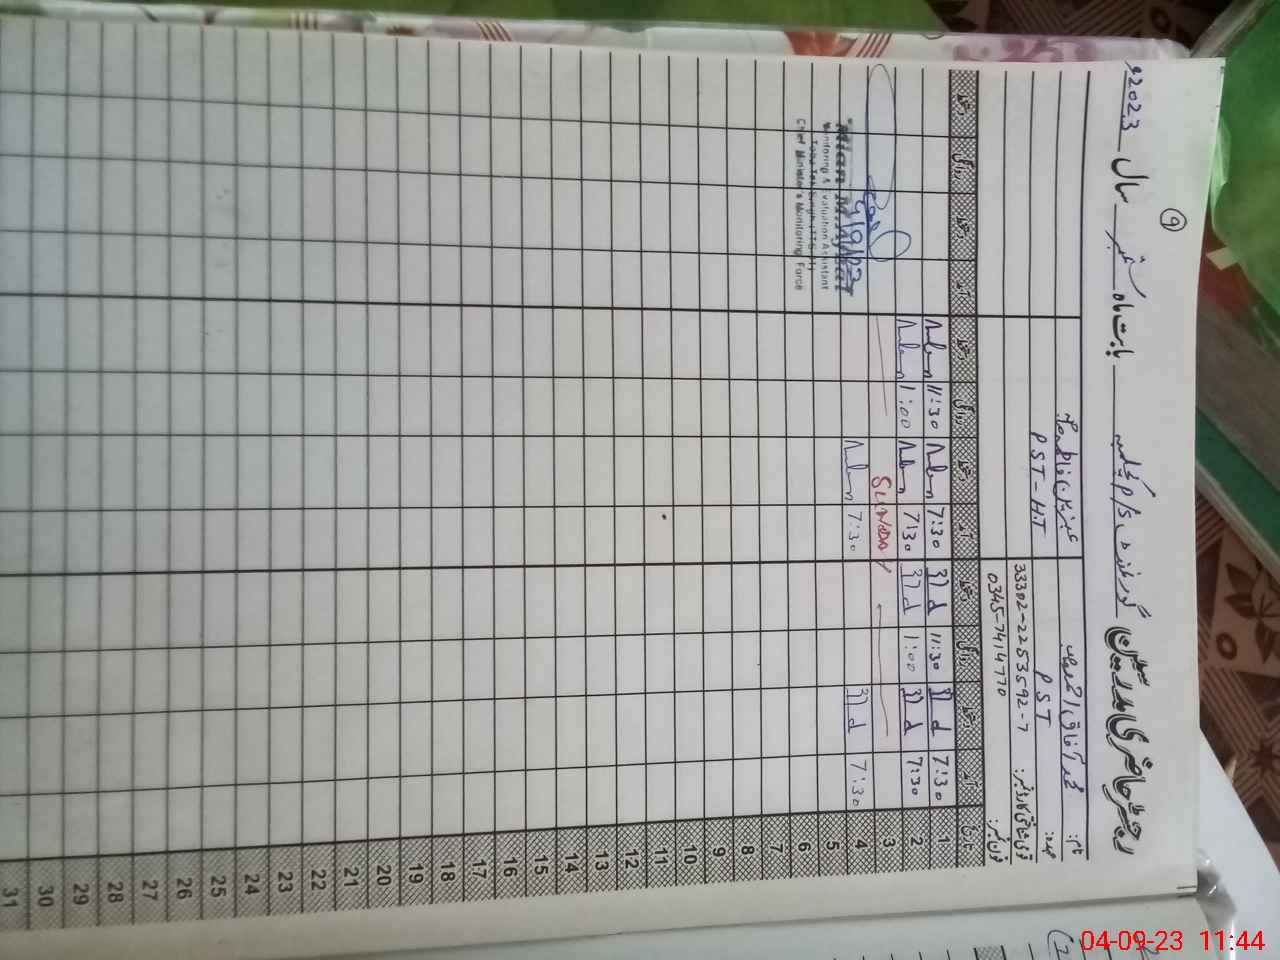 9
رجسٹر حاضری مدرسین گورنمنٹ p/s بابت ماہ ستمبر سال 2023ء
نام: محمد آفاق احمد
عہدہ: PST PST-HT
قومی شناختی کارڈ نمبر: 33302-2253592-7
فون نمبر: 0345-7414770
تاریخ آمد دستخط روانگی دستخط آمد دستخط روانگی دستخط آمد دستخط روانگی دستخط
1 7:30 11:30 7:30 11:30
2 7:30 1:00 7:30 1:00
3 SUNDAY
4 7:30 7:30
4/9/23
Mian M.
Monitoring & Evaluation Assistant
Toba Tek Singh
Chief Minister's Monitoring Force
5
6
7
8
9
10
11
12
13
14
15
16
17
18
19
20
21
22
23
24
25
26
27
28
29
30
31
04-09-23 11:44